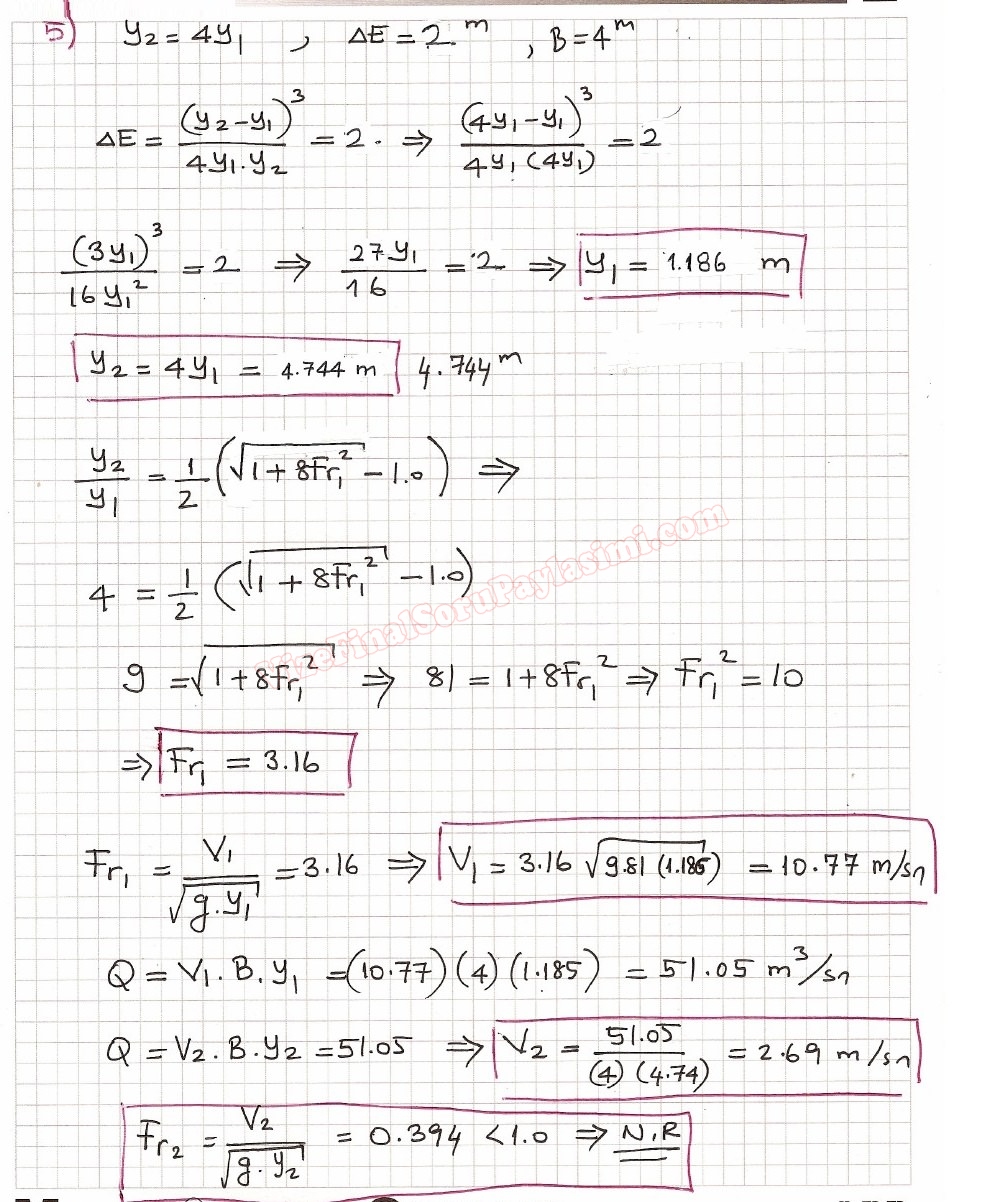 5) y₂ = 4y₁ , ΔE = 2 m , B = 4 m
ΔE = (y₂ - y₁)³ / 4y₁.y₂ = 2. ⇒ (4y₁ - y₁)³ / 4y₁(4y₁) = 2
(3y₁)³ / 16y₁² = 2 ⇒ 27y₁ / 16 = 2 ⇒ y₁ = 1.186 m
y₂ = 4y₁ = 4.744 m 4.744 m
y₂ / y₁ = 1/2 (√(1 + 8Fr₁²) - 1.0) ⇒
4 = 1/2 (√(1 + 8Fr₁²) - 1.0)
VizeFinalSoruPaylasimi.com
9 = √(1 + 8Fr₁²) ⇒ 81 = 1 + 8Fr₁² ⇒ Fr₁² = 10
⇒ Fr₁ = 3.16
Fr₁ = V₁ / √(g.y₁) = 3.16 ⇒ V₁ = 3.16 √(9.81 (1.185)) = 10.77 m/sn
Q = V₁.B.y₁ = (10.77)(4)(1.185) = 51.05 m³/sn
Q = V₂.B.y₂ = 51.05 ⇒ V₂ = 51.05 / (4)(4.74) = 2.69 m/sn
Fr₂ = V₂ / √(g.y₂) = 0.394 < 1.0 ⇒ N.R